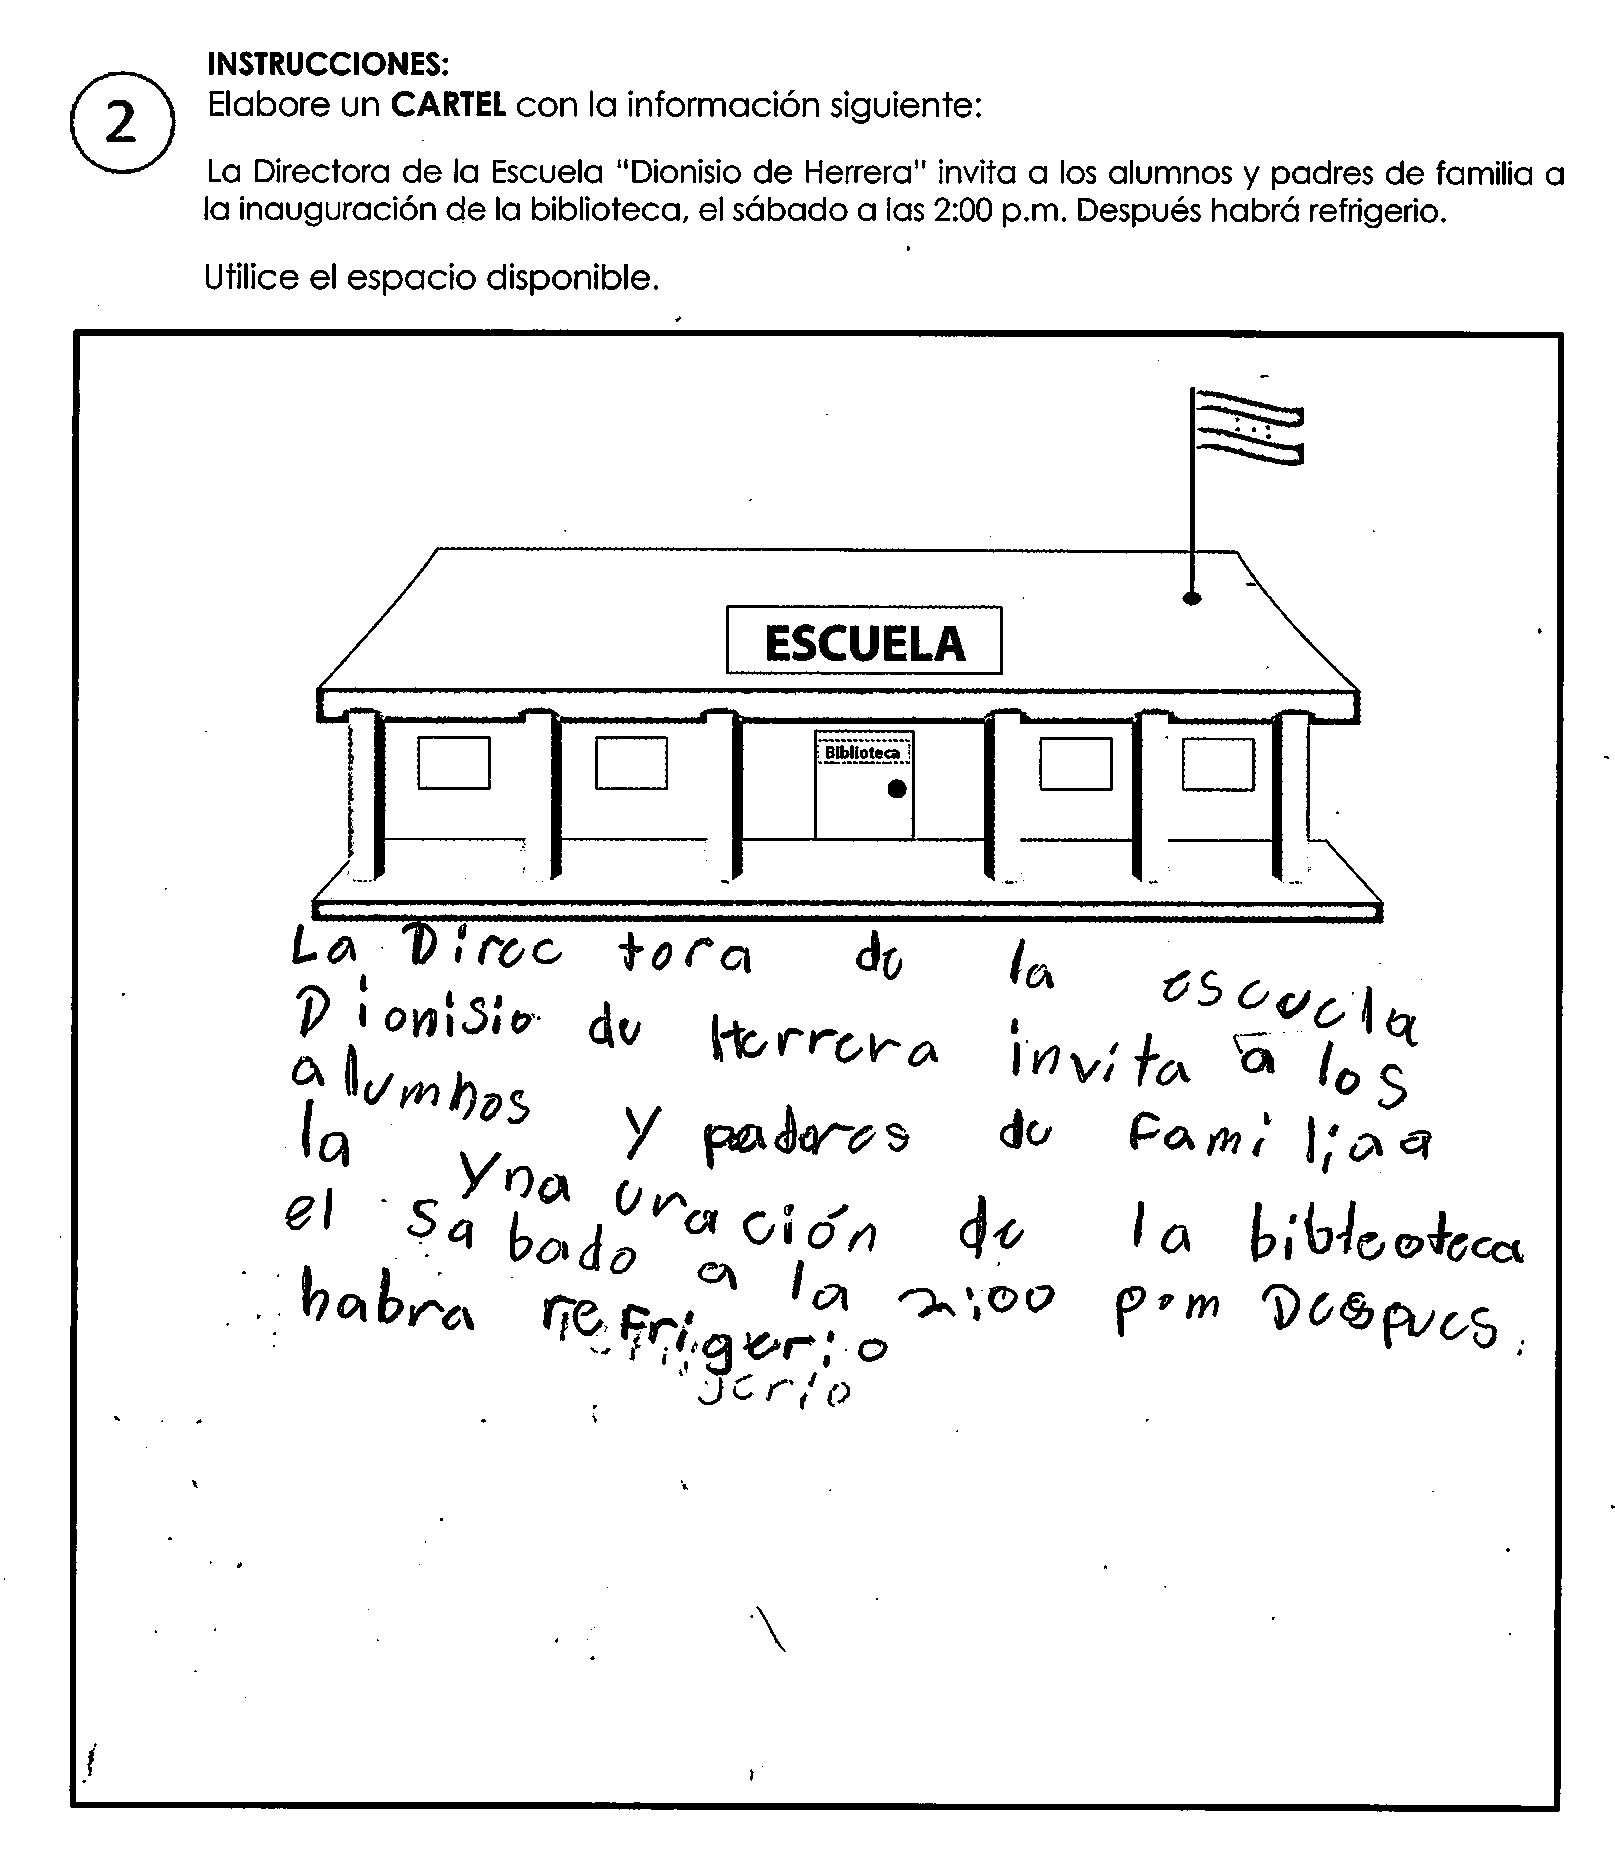 INSTRUCCIONES:
2
Elabore un CARTEL con la información siguiente:
La Directora de la Escuela "Dionisio de Herrera" invita a los alumnos y padres de familia a
la inauguración de la biblioteca, el sábado a las 2:00 p.m. Después habrá refrigerio.
Utilice el espacio disponible.
ESCUELA
Biblioteca
La Direc tora de la escuela
Dionisio de Herrera invita a los
alumnos y padores de Familia a
la Yna uración de la bibleoteca
el sabado a la 2:00 p.m Despues
habra reFrigerio
gerio